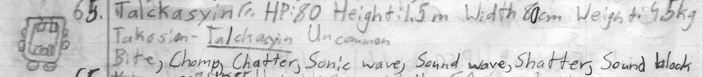 65. Talckasyin G. HP:80 Height:1.5m Width 80cm Weight: 9.5kg
Takosion - Talckasyin Uncommon
Bite, Chomp, Chatter, Sonic wave, Sound wave, Shatter, Sound block